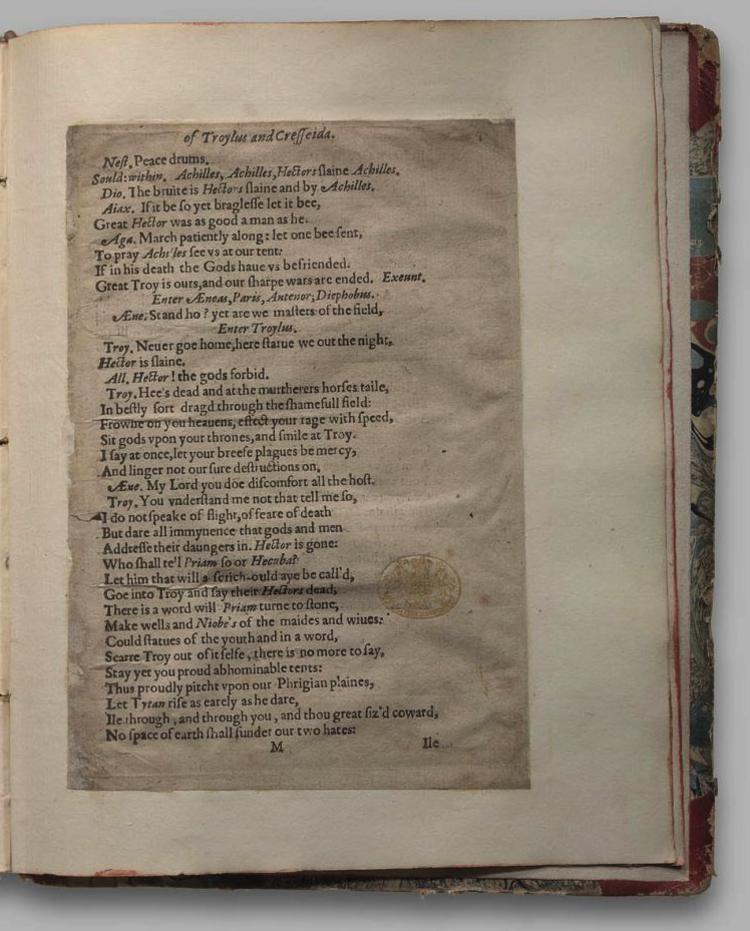 of Troylus and Cresseida.
Nest. Peace drums.
Sould: within. Achilles, Achilles, Hectors slaine Achilles.
Dio. The bruite is Hectors slaine and by Achilles.
Aiax. If it be so yet braglesse let it bee,
Great Hector was as good a man as he.
Aga. March patiently along: let one bee sent,
To pray Achilles see vs at our tent:
If in his death the Gods haue vs befriended.
Great Troy is ours, and our sharpe wars are ended. Exeunt.
Enter Æneas, Paris, Antenor, Diephobus.
Æne. Stand ho? yet are we masters of the field,
Enter Troylus.
Troy. Neuer goe home, here starue we out the night,
Hector is slaine.
All. Hector! the gods forbid.
Troy. Hee's dead and at the murtherers horses taile,
In bestly sort dragd through the shamefull field:
Frowne on you heauens, effect your rage with speed,
Sit gods vpon your thrones, and smile at Troy.
I say at once, let your breefe plagues be mercy,
And linger not our sure destructions on.
Æne. My Lord you doe discomfort all the host.
Troy. You vnderstand me not that tell me so,
I do not speake of flight, of feare of death
But dare all immynence that gods and men
Addresse their daungers in. Hector is gone:
Who shall tell Priam so or Hecuba?
Let him that will a scrich-ould aye be call'd,
Goe into Troy and say their Hectors dead,
There is a word will Priam turne to stone,
Make wells and Niobe's of the maides and wiues:
Could statues of the youth and in a word,
Scarre Troy out of it selfe, there is no more to say,
Stay yet you proud abhominable tents:
Thus proudly pitcht vpon our Phrigian plaines,
Let Tytan rise as earely as he dare,
Ile through, and through you, and thou great siz'd coward,
No space of earth shall sunder our two hates:
M Ile